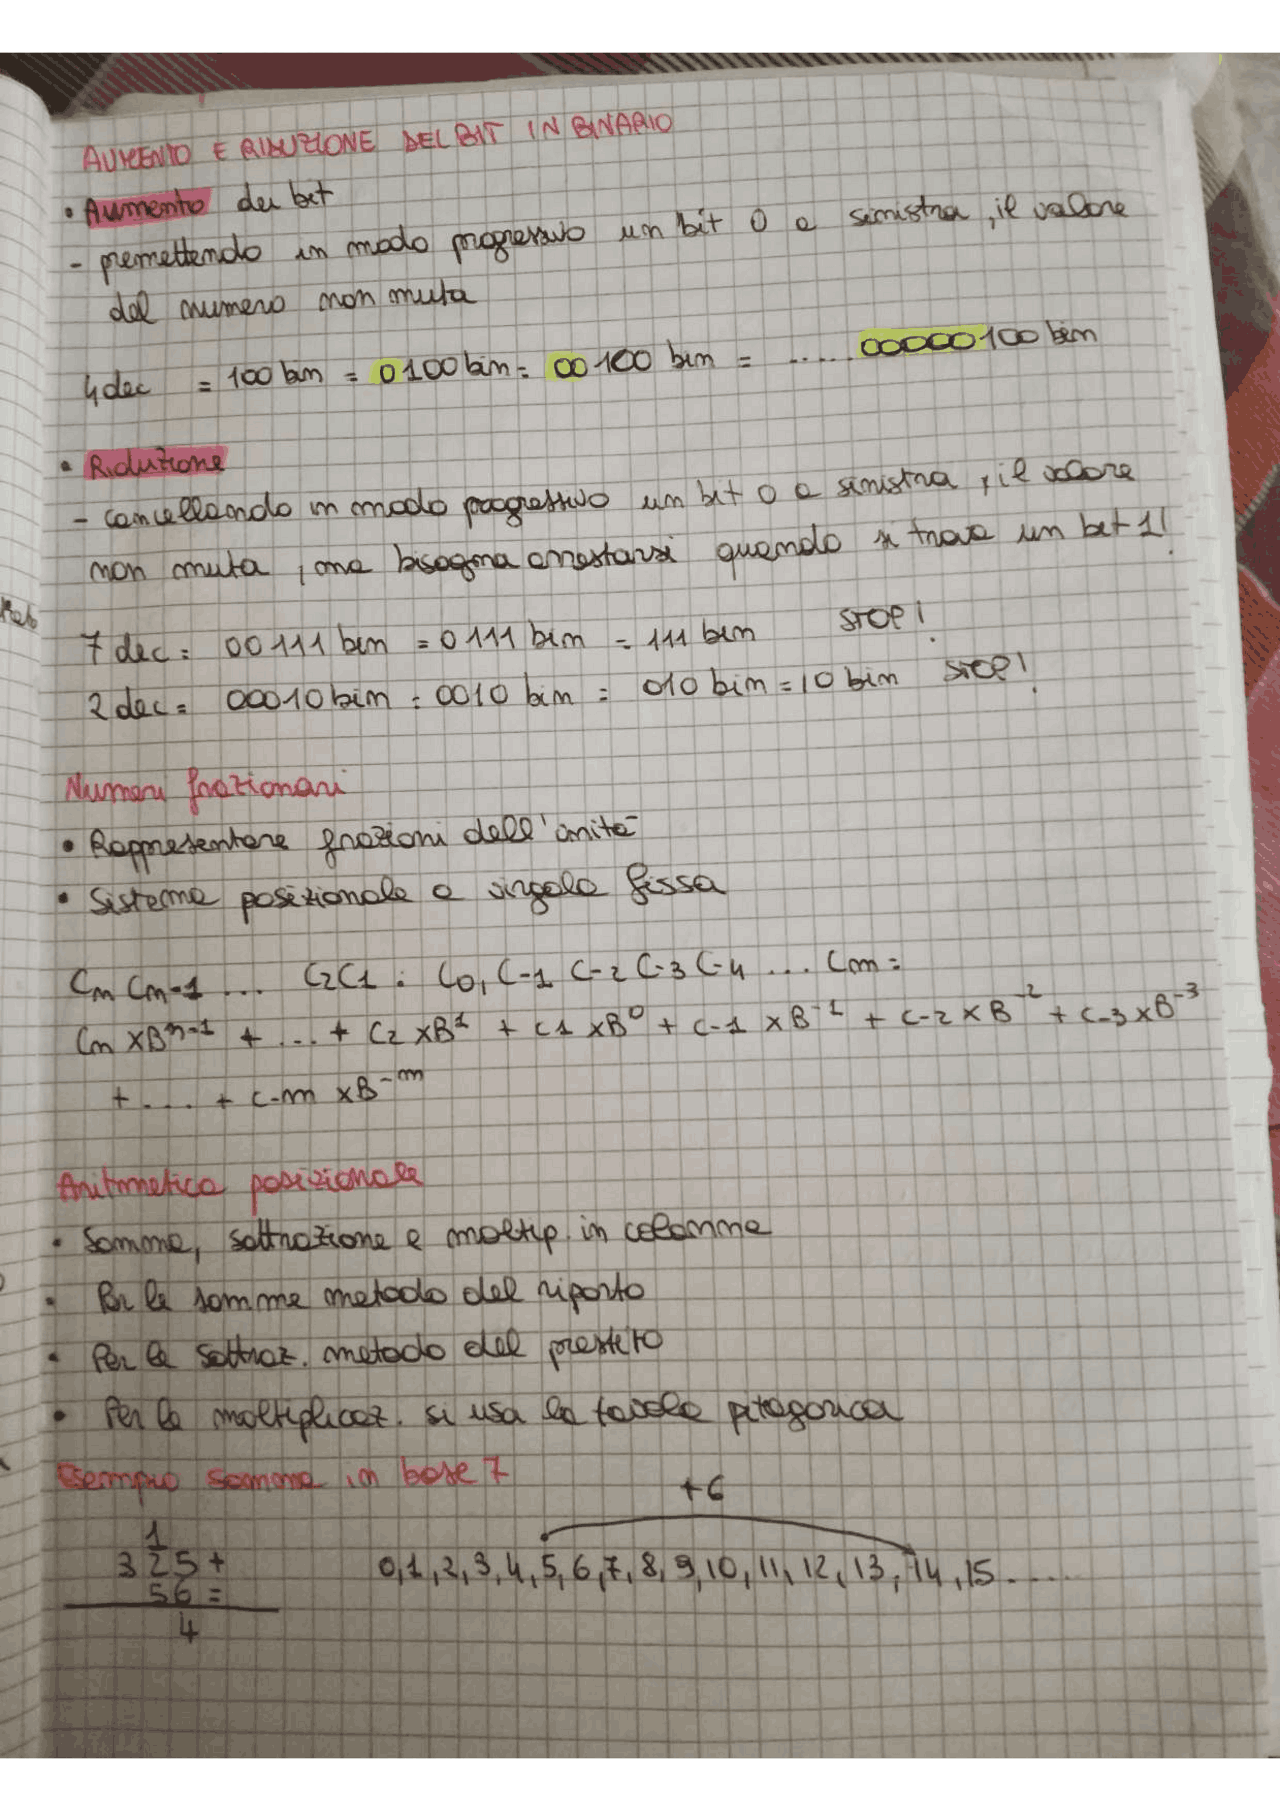 AUMENTO E RIDUZIONE DEL BIT IN BINARIO
• Aumento dei bit
- premettendo in modo progressivo un bit 0 a sinistra, il valore
del numero non muta
4 dec = 100 bin = 0100 bin = 00100 bin = ..... 00000100 bin
• Riduzione
- cancellando in modo progressivo un bit 0 a sinistra, il valore
non muta, ma bisogna arrestarsi quando si trova un bit 1!
7 dec = 00111 bin = 0111 bin = 111 bin STOP!
2 dec = 00010 bin = 0010 bin = 010 bin = 10 bin STOP!
Numeri frazionari
• Rappresentare frazioni dell'unità
• Sistema posizionale a virgola fissa
Cn Cn-1 ... C2C1 . C0, C-1 C-2 C-3 C-4 ... Cm =
Cn xBⁿ⁻¹ + ... + C2 xB¹ + C1 xB⁰ + C-1 xB⁻¹ + C-2 xB⁻² + C-3 xB⁻³
+ ... + C-m xB⁻ᵐ
Aritmetica posizionale
• Somma, sottrazione e moltip. in colonna
• Per le somme metodo del riporto
• Per le sottraz. metodo del prestito
• Per la moltiplicaz. si usa la tavola pitagorica
Esempio somma in base 7
+6
1
325+ 0,1,2,3,4,5,6,7,8,9,10,11,12,13,14,15.....
56=
4